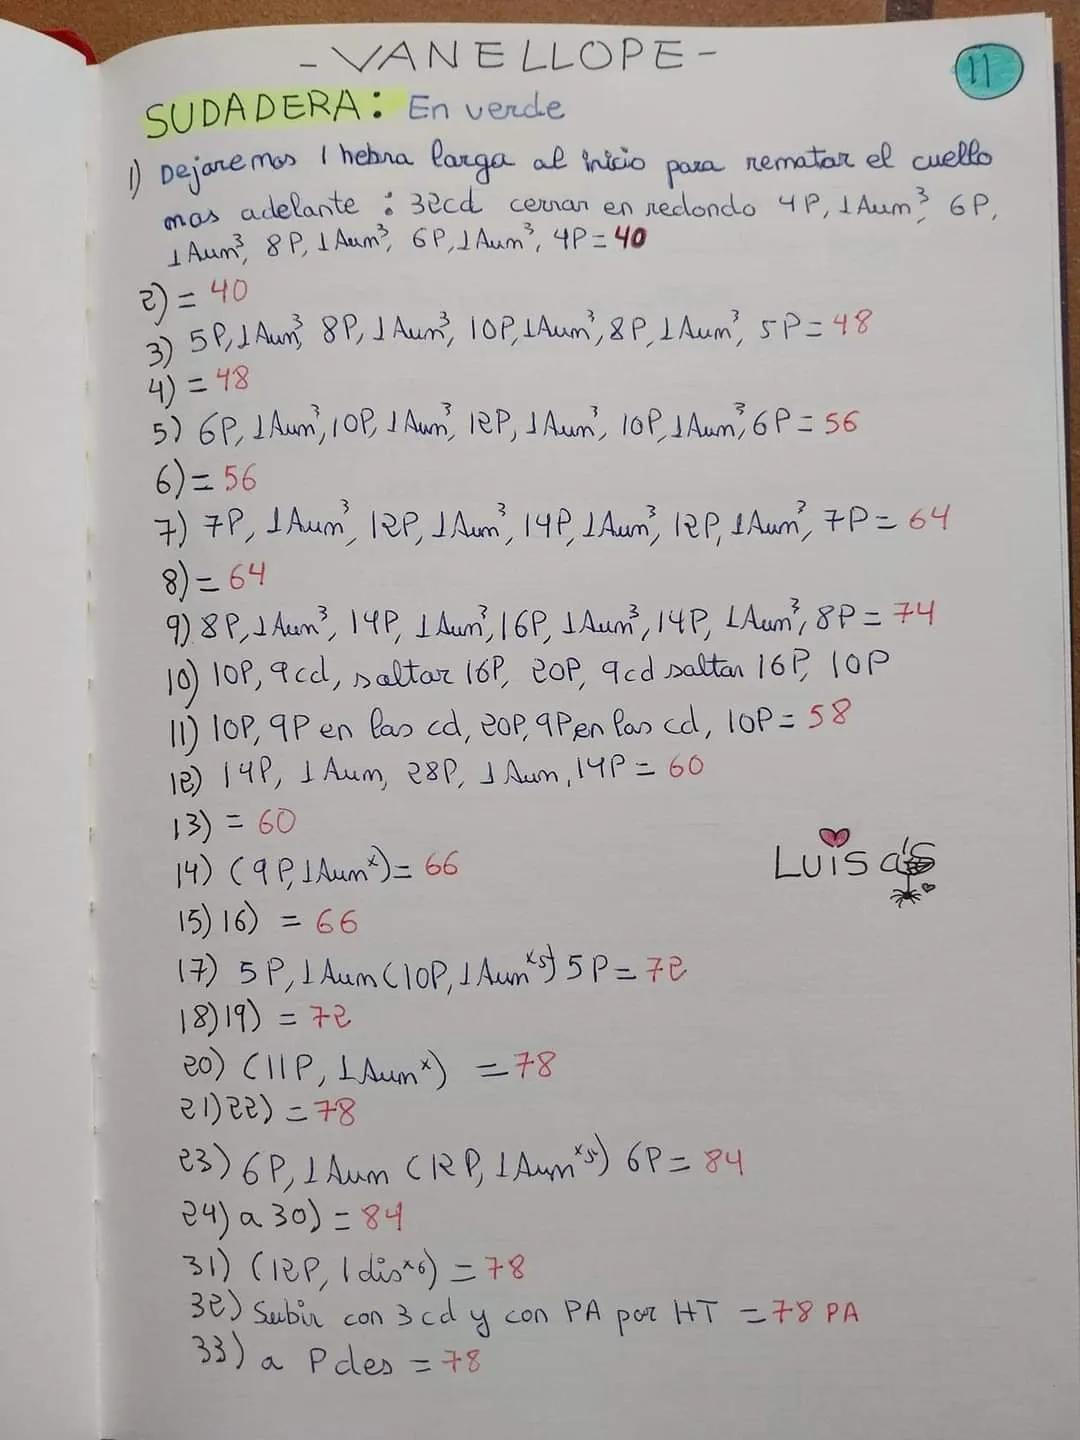 - VANELLOPE -
11
SUDADERA: En verde
1) Dejaremos 1 hebra larga al inicio para rematar el cuello
mas adelante : 32cd cerrar en redondo 4P, 1Aum³, 6P,
1Aum³, 8P, 1Aum³, 6P, 1Aum³, 4P = 40
2) = 40
3) 5P, 1Aum³, 8P, 1Aum³, 10P, 1Aum³, 8P, 1Aum³, 5P = 48
4) = 48
5) 6P, 1Aum³, 10P, 1Aum³, 12P, 1Aum³, 10P, 1Aum³, 6P = 56
6) = 56
7) 7P, 1Aum³, 12P, 1Aum³, 14P, 1Aum³, 12P, 1Aum³, 7P = 64
8) = 64
9) 8P, 1Aum³, 14P, 1Aum³, 16P, 1Aum³, 14P, 1Aum³, 8P = 74
10) 10P, 9cd, saltar 16P, 20P, 9cd saltar 16P, 10P
11) 10P, 9P en las cd, 20P, 9P en las cd, 10P = 58
12) 14P, 1Aum, 28P, 1Aum, 14P = 60
13) = 60
14) (9P, 1Aumˣ) = 66
Luisa's
15) 16) = 66
17) 5P, 1Aum (10P, 1Aumˣ⁵) 5P = 72
18) 19) = 72
20) (11P, 1Aumˣ) = 78
21) 22) = 78
23) 6P, 1Aum (12P, 1Aumˣ⁵) 6P = 84
24) a 30) = 84
31) (12P, 1disˣ⁶) = 78
32) Subir con 3cd y con PA por HT = 78 PA
33) a Pdes = 78